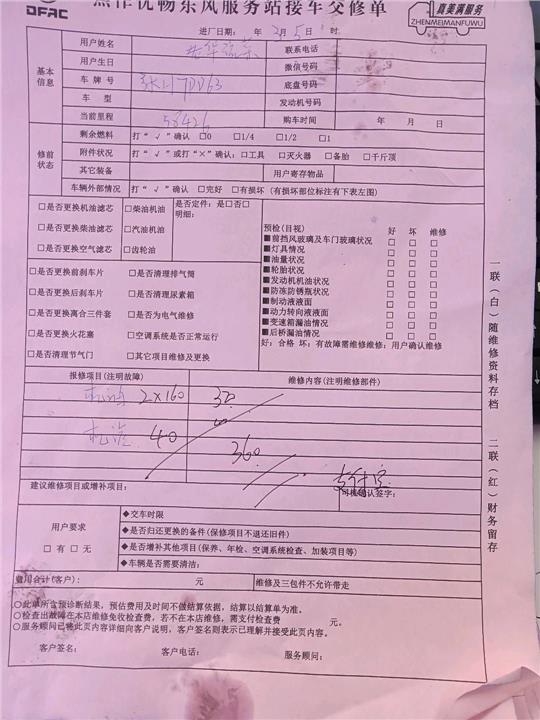 焦作优畅东风服务站接车交修单
DFAC
真美满服务
ZHENMEIMANFUWU
进厂日期： 年 3月 5日 时
基本信息
用户姓名
联系电话
用户生日
微信号码
车牌号
底盘号码
车 型
发动机号码
当前里程 58426
购车时间 年 月 日
修前状态
剩余燃料 打“√”确认 □0 □1/4 □1/2 □1
附件状况 打“√”或打“×”确认：□工具 □灭火器 □备胎 □千斤顶
其它装备 用户寄存物品
车辆外部情况 打“√”确认 □完好 □有损坏（有损坏部位标注有下表左图）
□是否更换机油滤芯 □柴油机油 是否定件：是□否□
明细：
□是否更换柴油滤芯 □汽油机油
□是否更换空气滤芯 □齿轮油
预检(目视) 好 坏 维修
■前挡风玻璃及车门玻璃状况 □ □ □
■灯具情况 □ □ □
■油量状况 □ □ □
■轮胎状况 □ □ □
■发动机机油状况 □ □ □
■防冻防锈瓶状况 □ □ □
■制动液液面 □ □ □
■动力转向液液面 □ □ □
■变速箱漏油情况 □ □ □
■后桥漏油情况 □ □ □
好：合格 坏：有故障需维修维修：用户确认维修
□是否更换前刹车片 □是否清理排气筒
□是否更换后刹车片 □是否清理尿素箱
□是否更换离合三件套 □是否为电气维修
□是否更换火花塞 □空调系统是否正常运行
□是否清理节气门 □其它项目维修及更换
报修项目(注明故障) 维修内容(注明维修部件)
2×160
40
360
建议维修项目或增补项目：
司机确认签字：
用户要求
□ 有 □ 无
◆交车时限
◆是否归还更换的备件(保修项目不退还旧件)
◆是否增补其他项目(保养、年检、空调系统检查、加装项目等)
◆车辆是否需要清洁：
费用合计(客户)： 元 维修及三包件不允许带走
○此单所含预诊断结果，预估费用及时间不做结算依据，结算以结算单为准。
○检查出故障在本店维修免收检查费，若不在本店维修，需支付检查费 元。
○服务顾问已将此页内容详细向客户说明，客户签名则表示已理解并接受此页内容。
客户签名： 客户电话： 服务顾问：
一联(白)随维修资料存档 二联(红)财务留存